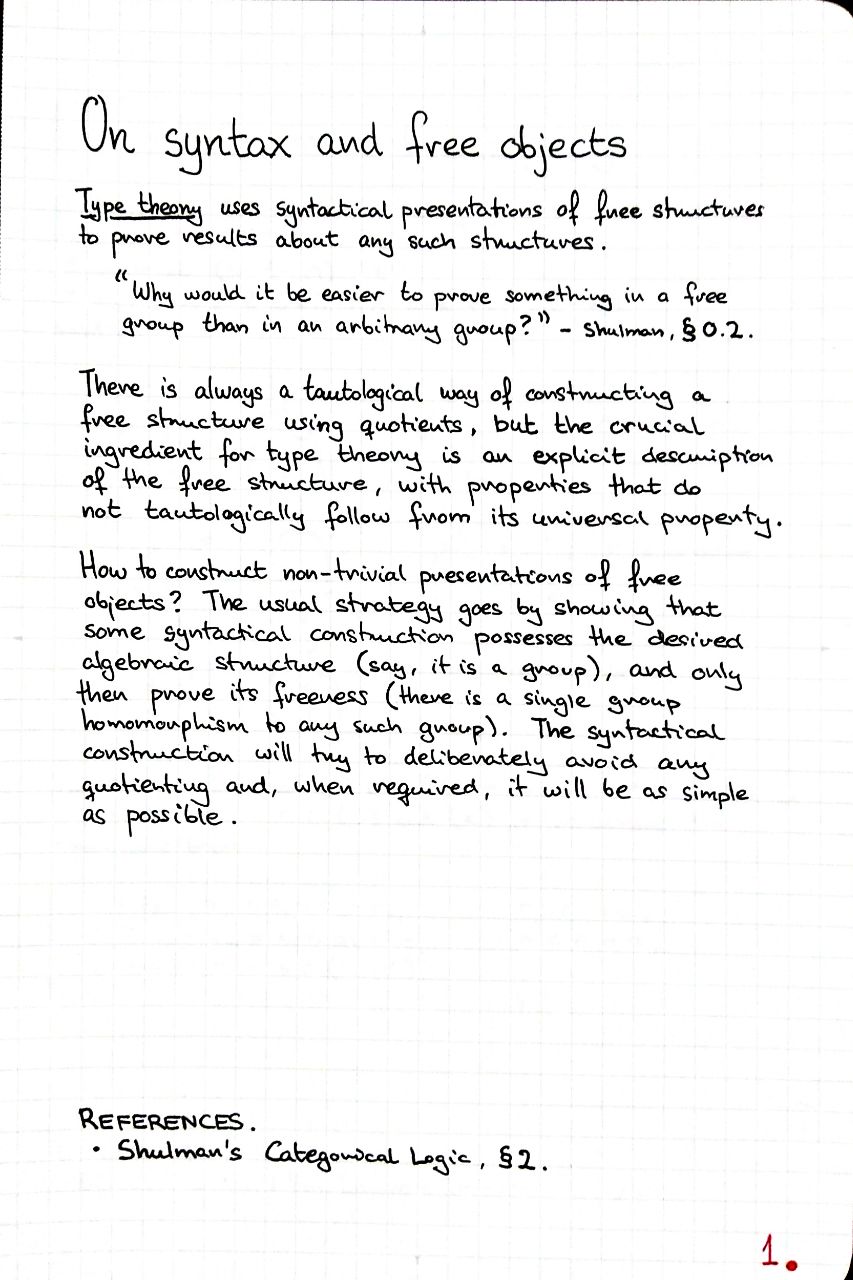 On syntax and free objects
Type theory uses syntactical presentations of free structures
to prove results about any such structures.
"Why would it be easier to prove something in a free
group than in an arbitrary group?" - Shulman, §0.2.
There is always a tautological way of constructing a
free structure using quotients, but the crucial
ingredient for type theory is an explicit description
of the free structure, with properties that do
not tautologically follow from its universal property.
How to construct non-trivial presentations of free
objects? The usual strategy goes by showing that
some syntactical construction possesses the desired
algebraic structure (say, it is a group), and only
then prove its freeness (there is a single group
homomorphism to any such group). The syntactical
construction will try to deliberately avoid any
quotienting and, when required, it will be as simple
as possible.
REFERENCES.
• Shulman's Categorical Logic, §2.
1.